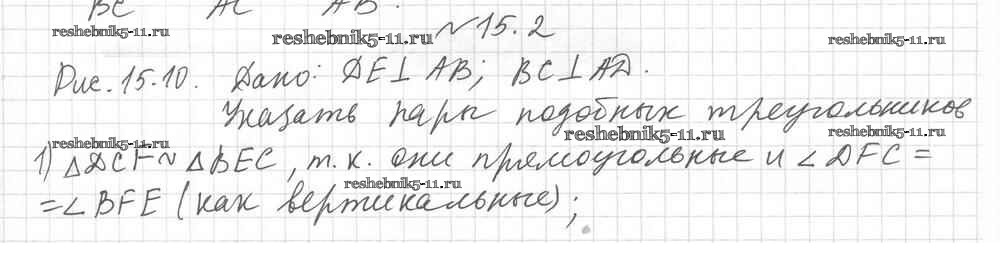 BC AC AB.
№ 15.2
reshebnik5-11.ru reshebnik5-11.ru reshebnik5-11.ru
Рис. 15.10. Дано: DE⊥AB; BC⊥AD.
Указать пары подобных треугольников
reshebnik5-11.ru reshebnik5-11.ru reshebnik5-11.ru
1) △DCF ~ △BEC, т.к. они прямоугольные и ∠DFC =
reshebnik5-11.ru
= ∠BFE (как вертикальные);